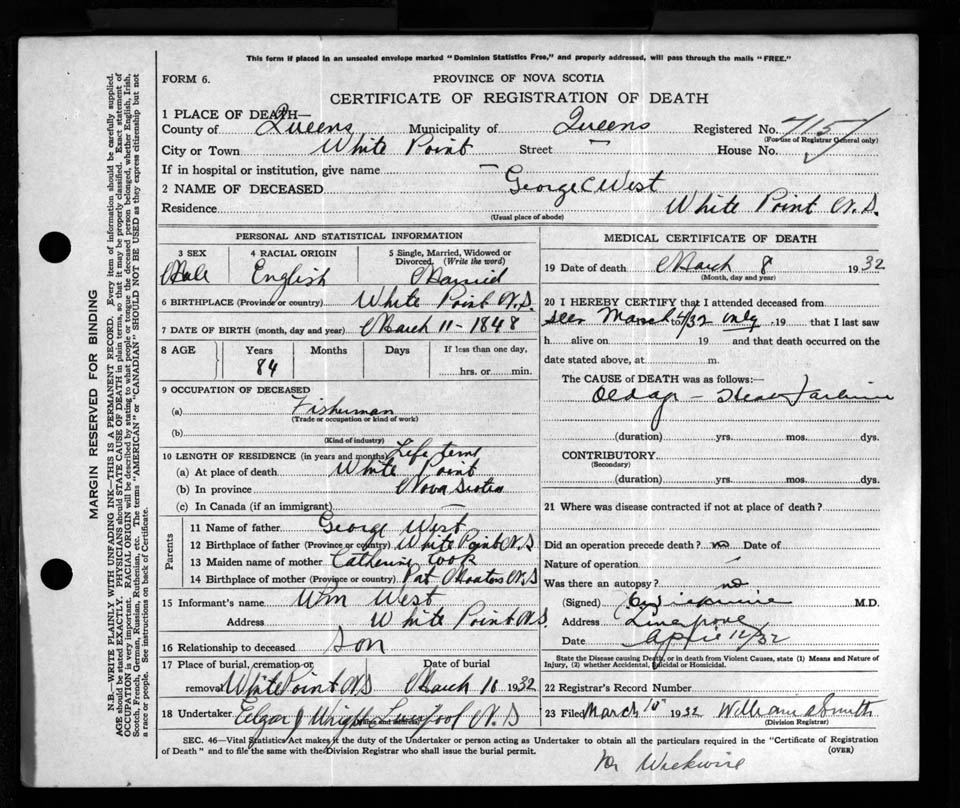 This form if placed in an unsealed envelope marked "Dominion Statistics Free," and properly addressed, will pass through the mails "FREE."
FORM 6.
PROVINCE OF NOVA SCOTIA
CERTIFICATE OF REGISTRATION OF DEATH
1 PLACE OF DEATH—
County of Queens Municipality of Queens Registered No. 7157
(For use of Registrar General only)
City or Town White Point Street — House No.
If in hospital or institution, give name —
2 NAME OF DECEASED George C West
Residence White Point N.S.
(Usual place of abode)
PERSONAL AND STATISTICAL INFORMATION
3 SEX 4 RACIAL ORIGIN 5 Single, Married, Widowed or
Divorced. (Write the word)
Male English Married
6 BIRTHPLACE (Province or country) White Point N.S.
7 DATE OF BIRTH (month, day and year) March 11 - 1848
8 AGE Years Months Days If less than one day,
84 hrs. or min.
9 OCCUPATION OF DECEASED
(a) Fisherman
(Trade or occupation or kind of work)
(b)
(Kind of industry)
10 LENGTH OF RESIDENCE (in years and months) Life time
(a) At place of death White Point
(b) In province Nova Scotia
(c) In Canada (if an immigrant)
Parents
11 Name of father George West
12 Birthplace of father (Province or country) White Point N.S
13 Maiden name of mother Catherine Cook
14 Birthplace of mother (Province or country) Port Moutons N.S
15 Informant's name Wm West
Address White Point N.S.
16 Relationship to deceased Son
17 Place of burial, cremation or Date of burial
removal White Point N S March 10 1932
18 Undertaker J Wright Liverpool N.S
MEDICAL CERTIFICATE OF DEATH
19 Date of death March 8 1932
(Month, day and year)
20 I HEREBY CERTIFY that I attended deceased from
seen March 4/32 only 19 that I last saw
h alive on 19 and that death occurred on the
date stated above, at m.
The CAUSE of DEATH was as follows:—
Old age - Heart Failure
(duration) yrs. mos. dys.
CONTRIBUTORY
(Secondary)
(duration) yrs. mos. dys.
21 Where was disease contracted if not at place of death?
Did an operation precede death? no Date of
Nature of operation
Was there an autopsy? no
(Signed) M.D.
Address Liverpool
Date April 12/32
State the Disease causing Death, or in death from Violent Causes, state (1) Means and Nature of
Injury, (2) whether Accidental, Suicidal or Homicidal.
22 Registrar's Record Number
23 Filed March 10 1932 William Smith
(Division Registrar)
SEC. 46—Vital Statistics Act makes it the duty of the Undertaker or person acting as Undertaker to obtain all the particulars required in the "Certificate of Registration
of Death" and to file the same with the Division Registrar who shall issue the burial permit. (OVER)
Dr Wickwire
MARGIN RESERVED FOR BINDING
N.B.—WRITE PLAINLY WITH UNFADING INK—THIS IS A PERMANENT RECORD. Every item of information should be carefully supplied.
AGE should be stated EXACTLY. PHYSICIANS should STATE CAUSE OF DEATH in plain terms, so that it may be properly classified. Exact statement of
OCCUPATION is very important. RACIAL ORIGIN will be described by stating to what people or tongue the deceased person belonged, whether English, Irish,
Scotch, French, German, Russian, Ruthenian, etc. The terms "AMERICAN" or "CANADIAN" SHOULD NOT BE USED as they express citizenship but not
a race or people. See instructions on back of Certificate.